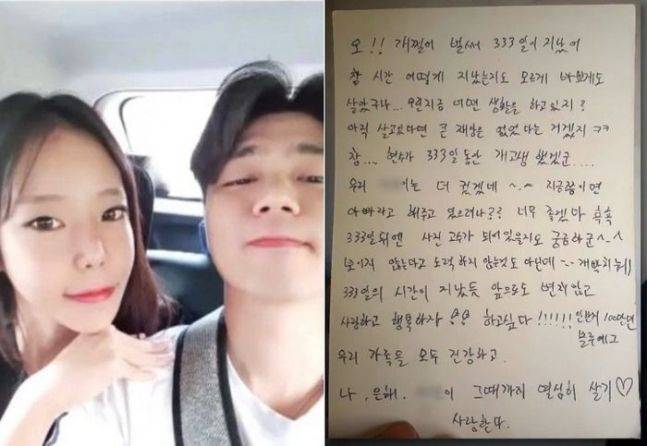 오!! 개쩔어 벌써 333일이 지났어
참 시간 어떻게 지났는지도 모르게 바쁘게도
살았구나... 우린지금 어떤 생활을 하고있지?
아직 살고있다면 큰 재앙은 없었다는 거겠지 ㅋㅋ
참... 현수가 333일 동안 개고생 했겠군....
우리 이는 더 컸겠네 ^.^ 지금쯤이면
아빠라고 해주고 있으려나?? 너무 좋겠다 흑흑
333일 뒤엔 사진 고수가 되어 있을지도 궁금하군^-^
않는다고 노력 하지 않는것도 아닌데
333일의 시간이 지났듯 앞으로도 변치않고
사랑하고 행복하자 하고싶다!!!!!!
우리 가족들 모두 건강하고.
나, 은해. 이 그때까지 열심히 살기♡
사랑한다.